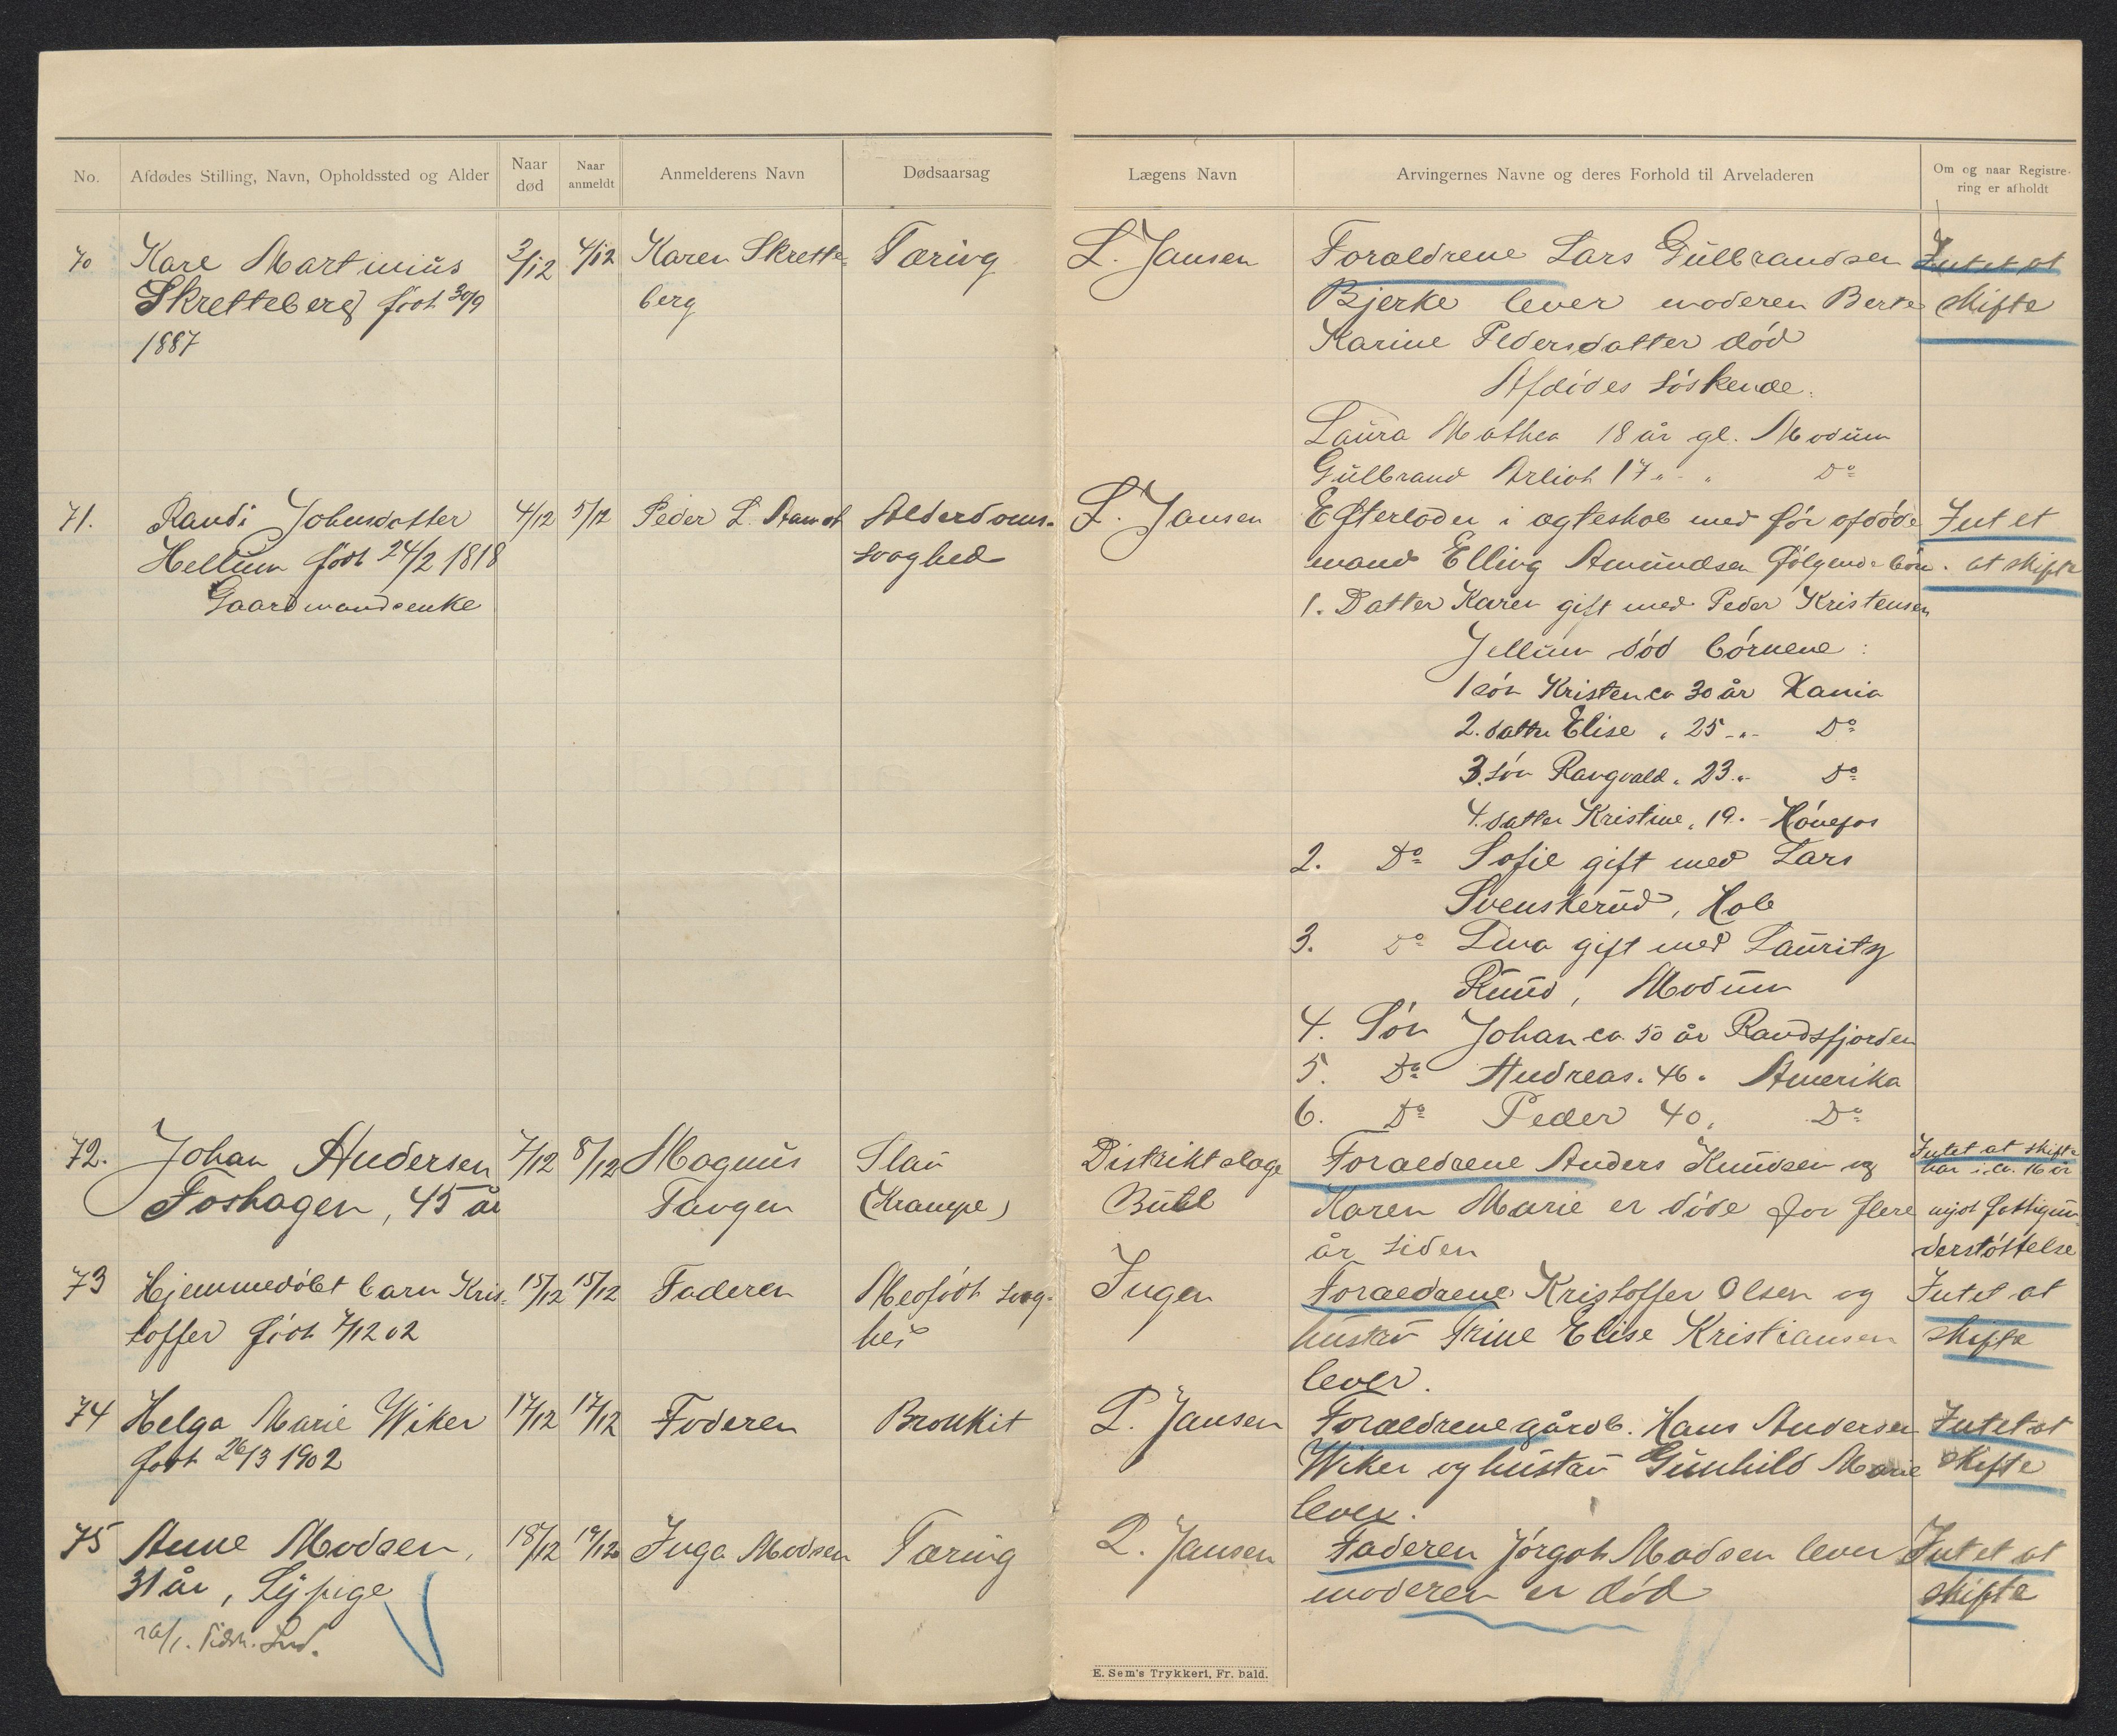 No. Afdødes Stilling, Navn, Opholdssted og Alder Naar død Naar anmeldt Anmelderens Navn Dødsaarsag Lægens Navn Arvingernes Navne og deres Forhold til Arveladeren Om og naar Registrering er afholdt
70 Karl Martinius 3/12 4/12 Karen Skrette- Tæring L. Jansen Forældrene Lars Gulbrandsen Intet at
Skretteberg født 30/9 berg Bjerke lever moderen Berte skifte
1887 Karine Pedersdatter død
Afdødes Søskende.
Laura Mathea 18 år gl. Modum
Gulbrand 17 " " Do
71. Randi Johnsdatter 4/12 5/12 Peder L. Alderdoms- L. Jansen Efterlader i ægteskab med før afdøde Intet
Hellum født 24/2 1818 svaghed mand Elling Amundsen følgende børn. at skifte
Gaardmandsenke 1. Datter Karen gift med Peder Kristensen
Jellum død børnene:
1 søn Kristen ca 30 år Xania
2. datter Elise " 25 " Do
3. søn Rangvald " 23 " Do
4. datter Kristine " 19 " Hønefos
2. Do Sofie gift med Lars
Svenskerud, Hole
3. Do Lina gift med Lauritz
Ruud, Modum
4. Søn Johan ca. 50 år Randsfjorden
5. Do Andreas " 46 " Amerika
6. Do Peder 40 " Do
72. Johan Andersen 7/12 8/12 Magnus Slau Distriktslæge Forældrene Anders Knudsen og Intet at skifte
har i ca. 16 år
Foshagen, 45 år Tangen (Krampe) Buhl Karen Marie er døde for flere nydt fattigun-
år siden derstøttelse
73 Hjemmedøbt barn Kris- 15/12 15/12 Faderen Medfødt svag- Ingen Forældrene Kristoffer Olsen og Intet at
toffer født 7/12 02 hed hustru Trine Elise Kristiansen skifte
lever.
74 Helga Marie Wiker 17/12 17/12 Faderen Bronkit L. Jansen Forældrene gårdb. Hans Andersen Intet at
født 26/3 1902 Wiker og hustru Gunhild Marie skifte
lever.
75 Anne Madsen, 18/12 19/12 Inga Madsen Tæring L. Jansen Faderen Jørgen Madsen lever Intet at
31 år, Sypige moderen er død skifte
E. Sem's Trykkeri, Fr. hald.